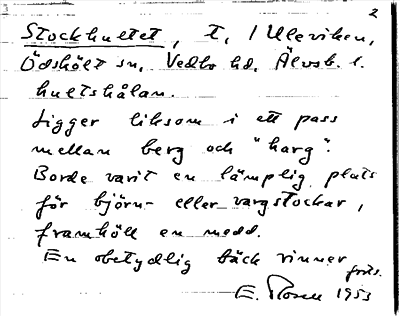 2
Stockhultet, t, i Ulerviken,
Ödskölt sn, Vedbo hd, Älvsb. l.
hultshålan.
Ligger liksom i ett pass
mellan berg och "harg".
Borde varit en lämplig plats
för björn- eller vargstockar,
framhöll en medd.
En obetydlig bäck rinner
förb.
E. Rosen 1953